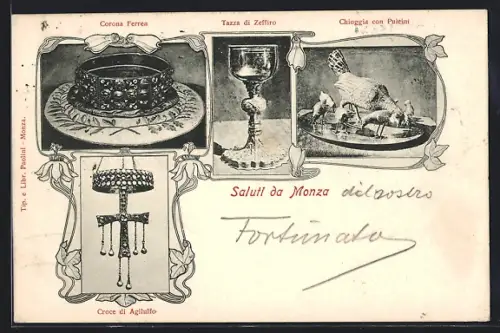 Corona Ferrea
Tazza di Zeffiro
Chioggia con Pulcini
Tip. e Libr. Paolini - Monza.
Saluti da Monza del nostro
Fortunato
Croce di Agilulfo